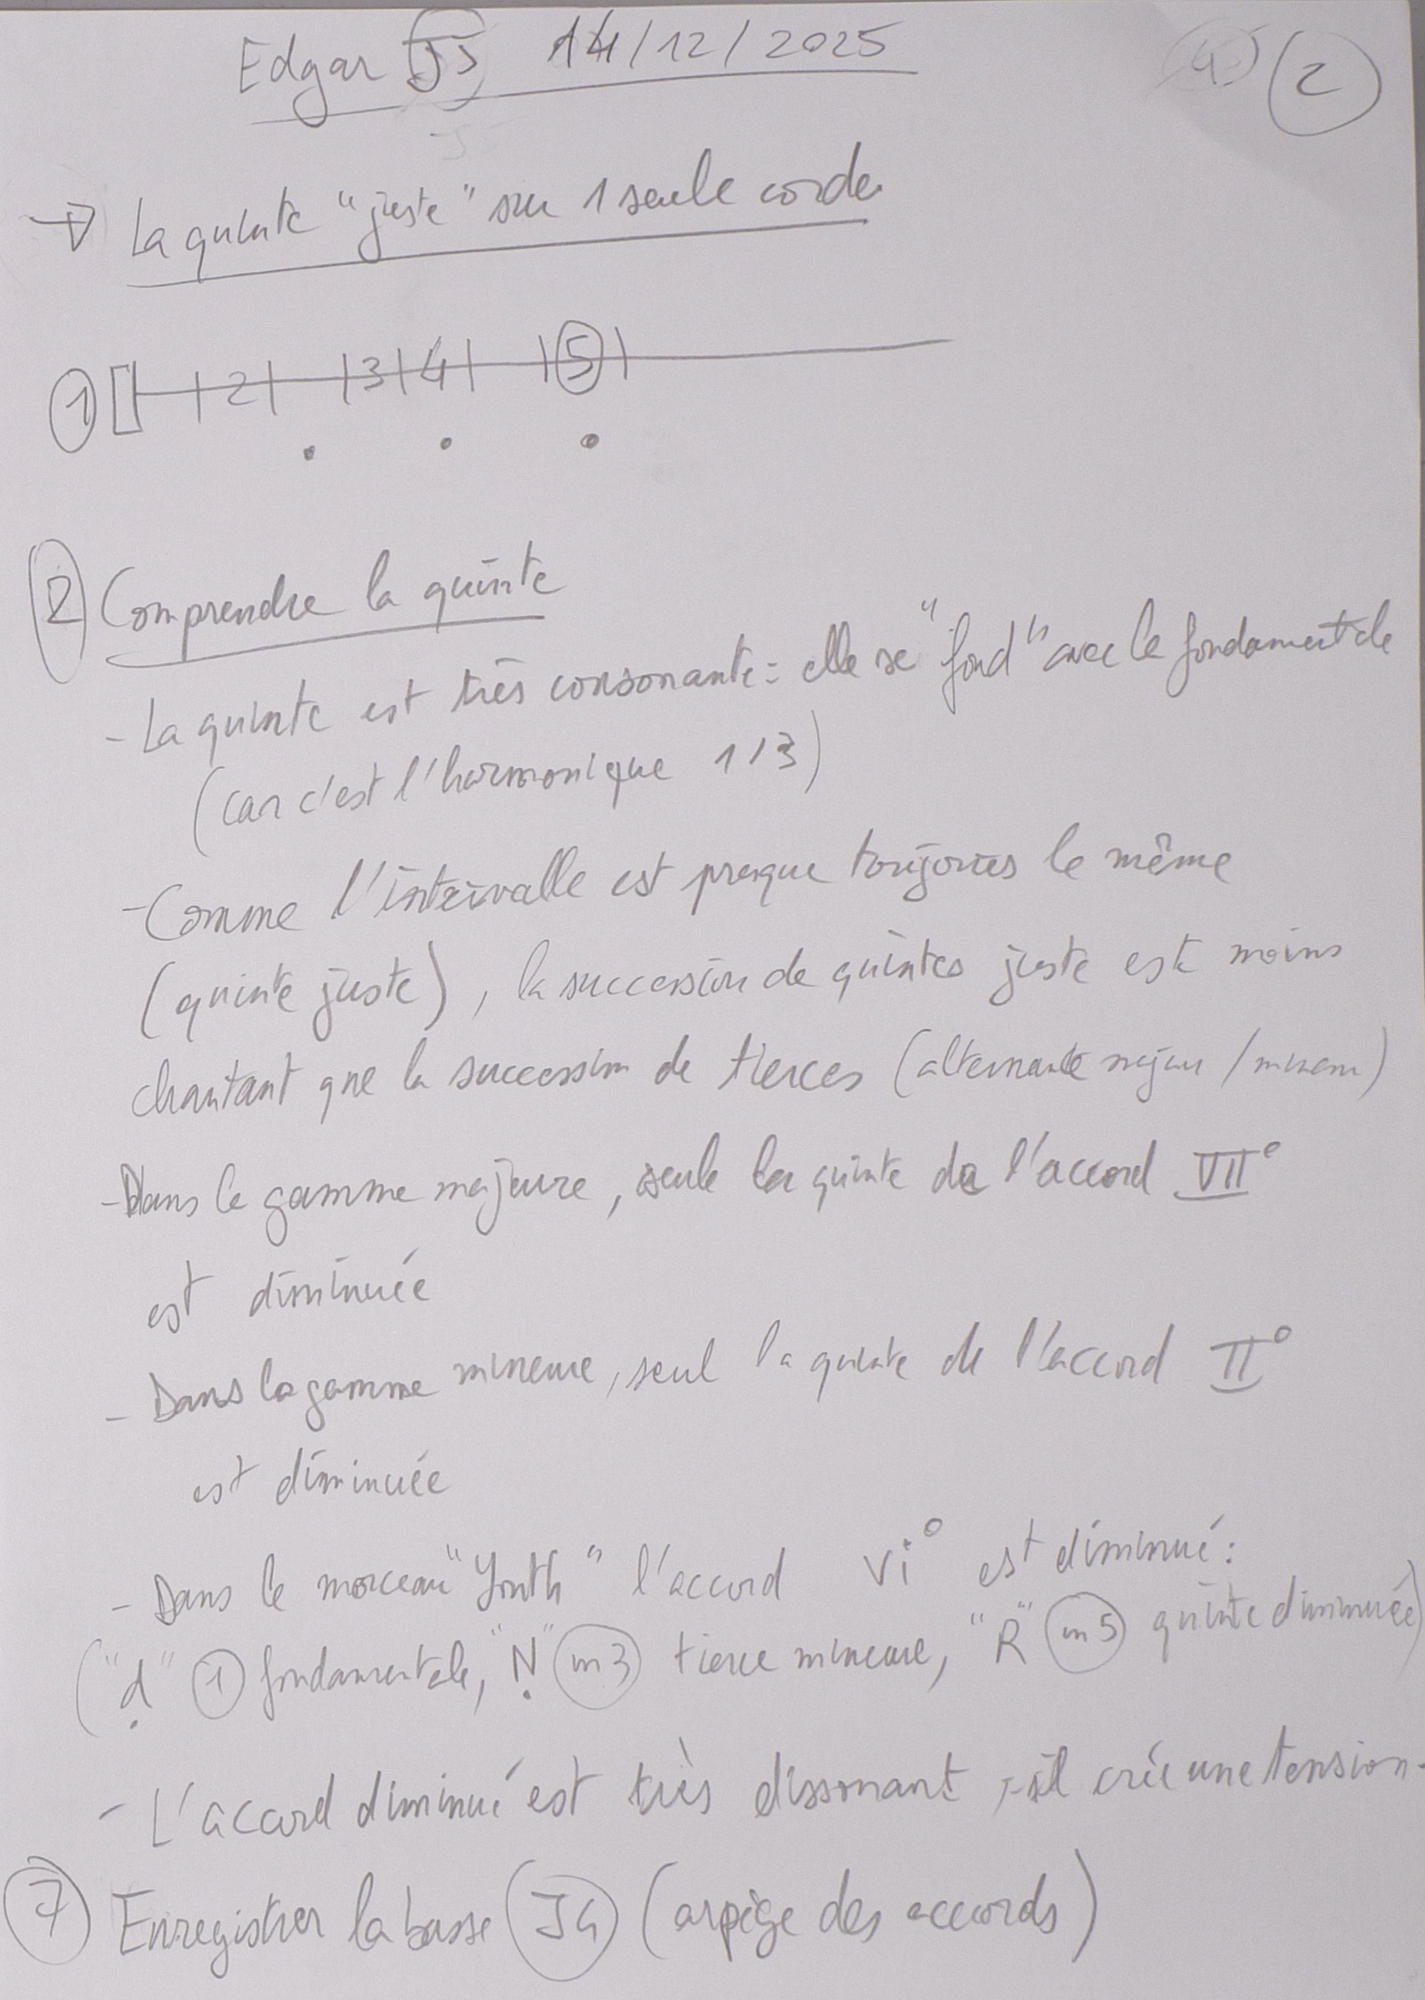 Edgar J5 14/12/2025
2
→ La quinte "juste" sur 1 seule corde
1 2 3 4 5
2 Comprendre la quinte
- La quinte est très consonante : elle se "fond" avec la fondamentale
(car c'est l'harmonique 1/3)
- Comme l'intervalle est presque toujours le même
(quinte juste), la succession de quintes juste est moins
chantant que la succession de tierces (alternance majeur / mineur)
- Dans la gamme majeure, seule la quinte de l'accord VII°
est diminuée
- Dans la gamme mineure, seul la quinte de l'accord II°
est diminuée
- Dans le morceau "Youth" l'accord vi° est diminué :
("ḍ" 1 fondamentale, "Ṇ" m3 tierce mineure, "R" m5 quinte diminuée)
- L'accord diminué est très dissonant, il crée une tension.
7 Enregistrer la basse J4 (arpège des accords)